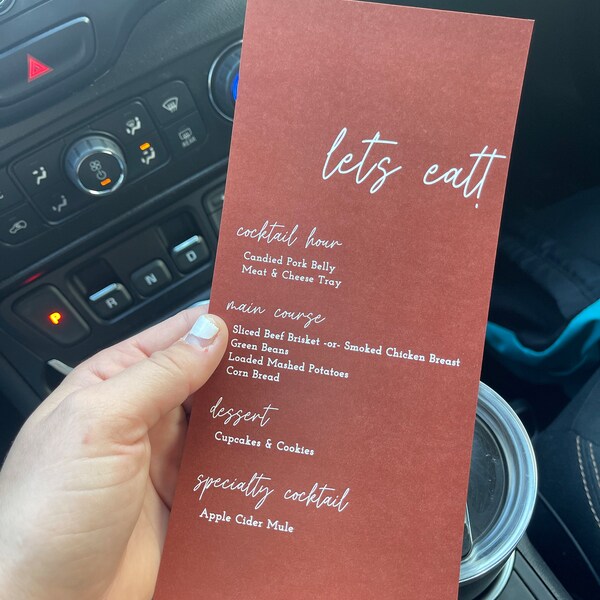 lets eat!
cocktail hour
Candied Pork Belly
Meat & Cheese Tray
main course
Sliced Beef Brisket -or- Smoked Chicken Breast
Green Beans
Loaded Mashed Potatoes
Corn Bread
dessert
Cupcakes & Cookies
specialty cocktail
Apple Cider Mule
REAR
P
R
N
D